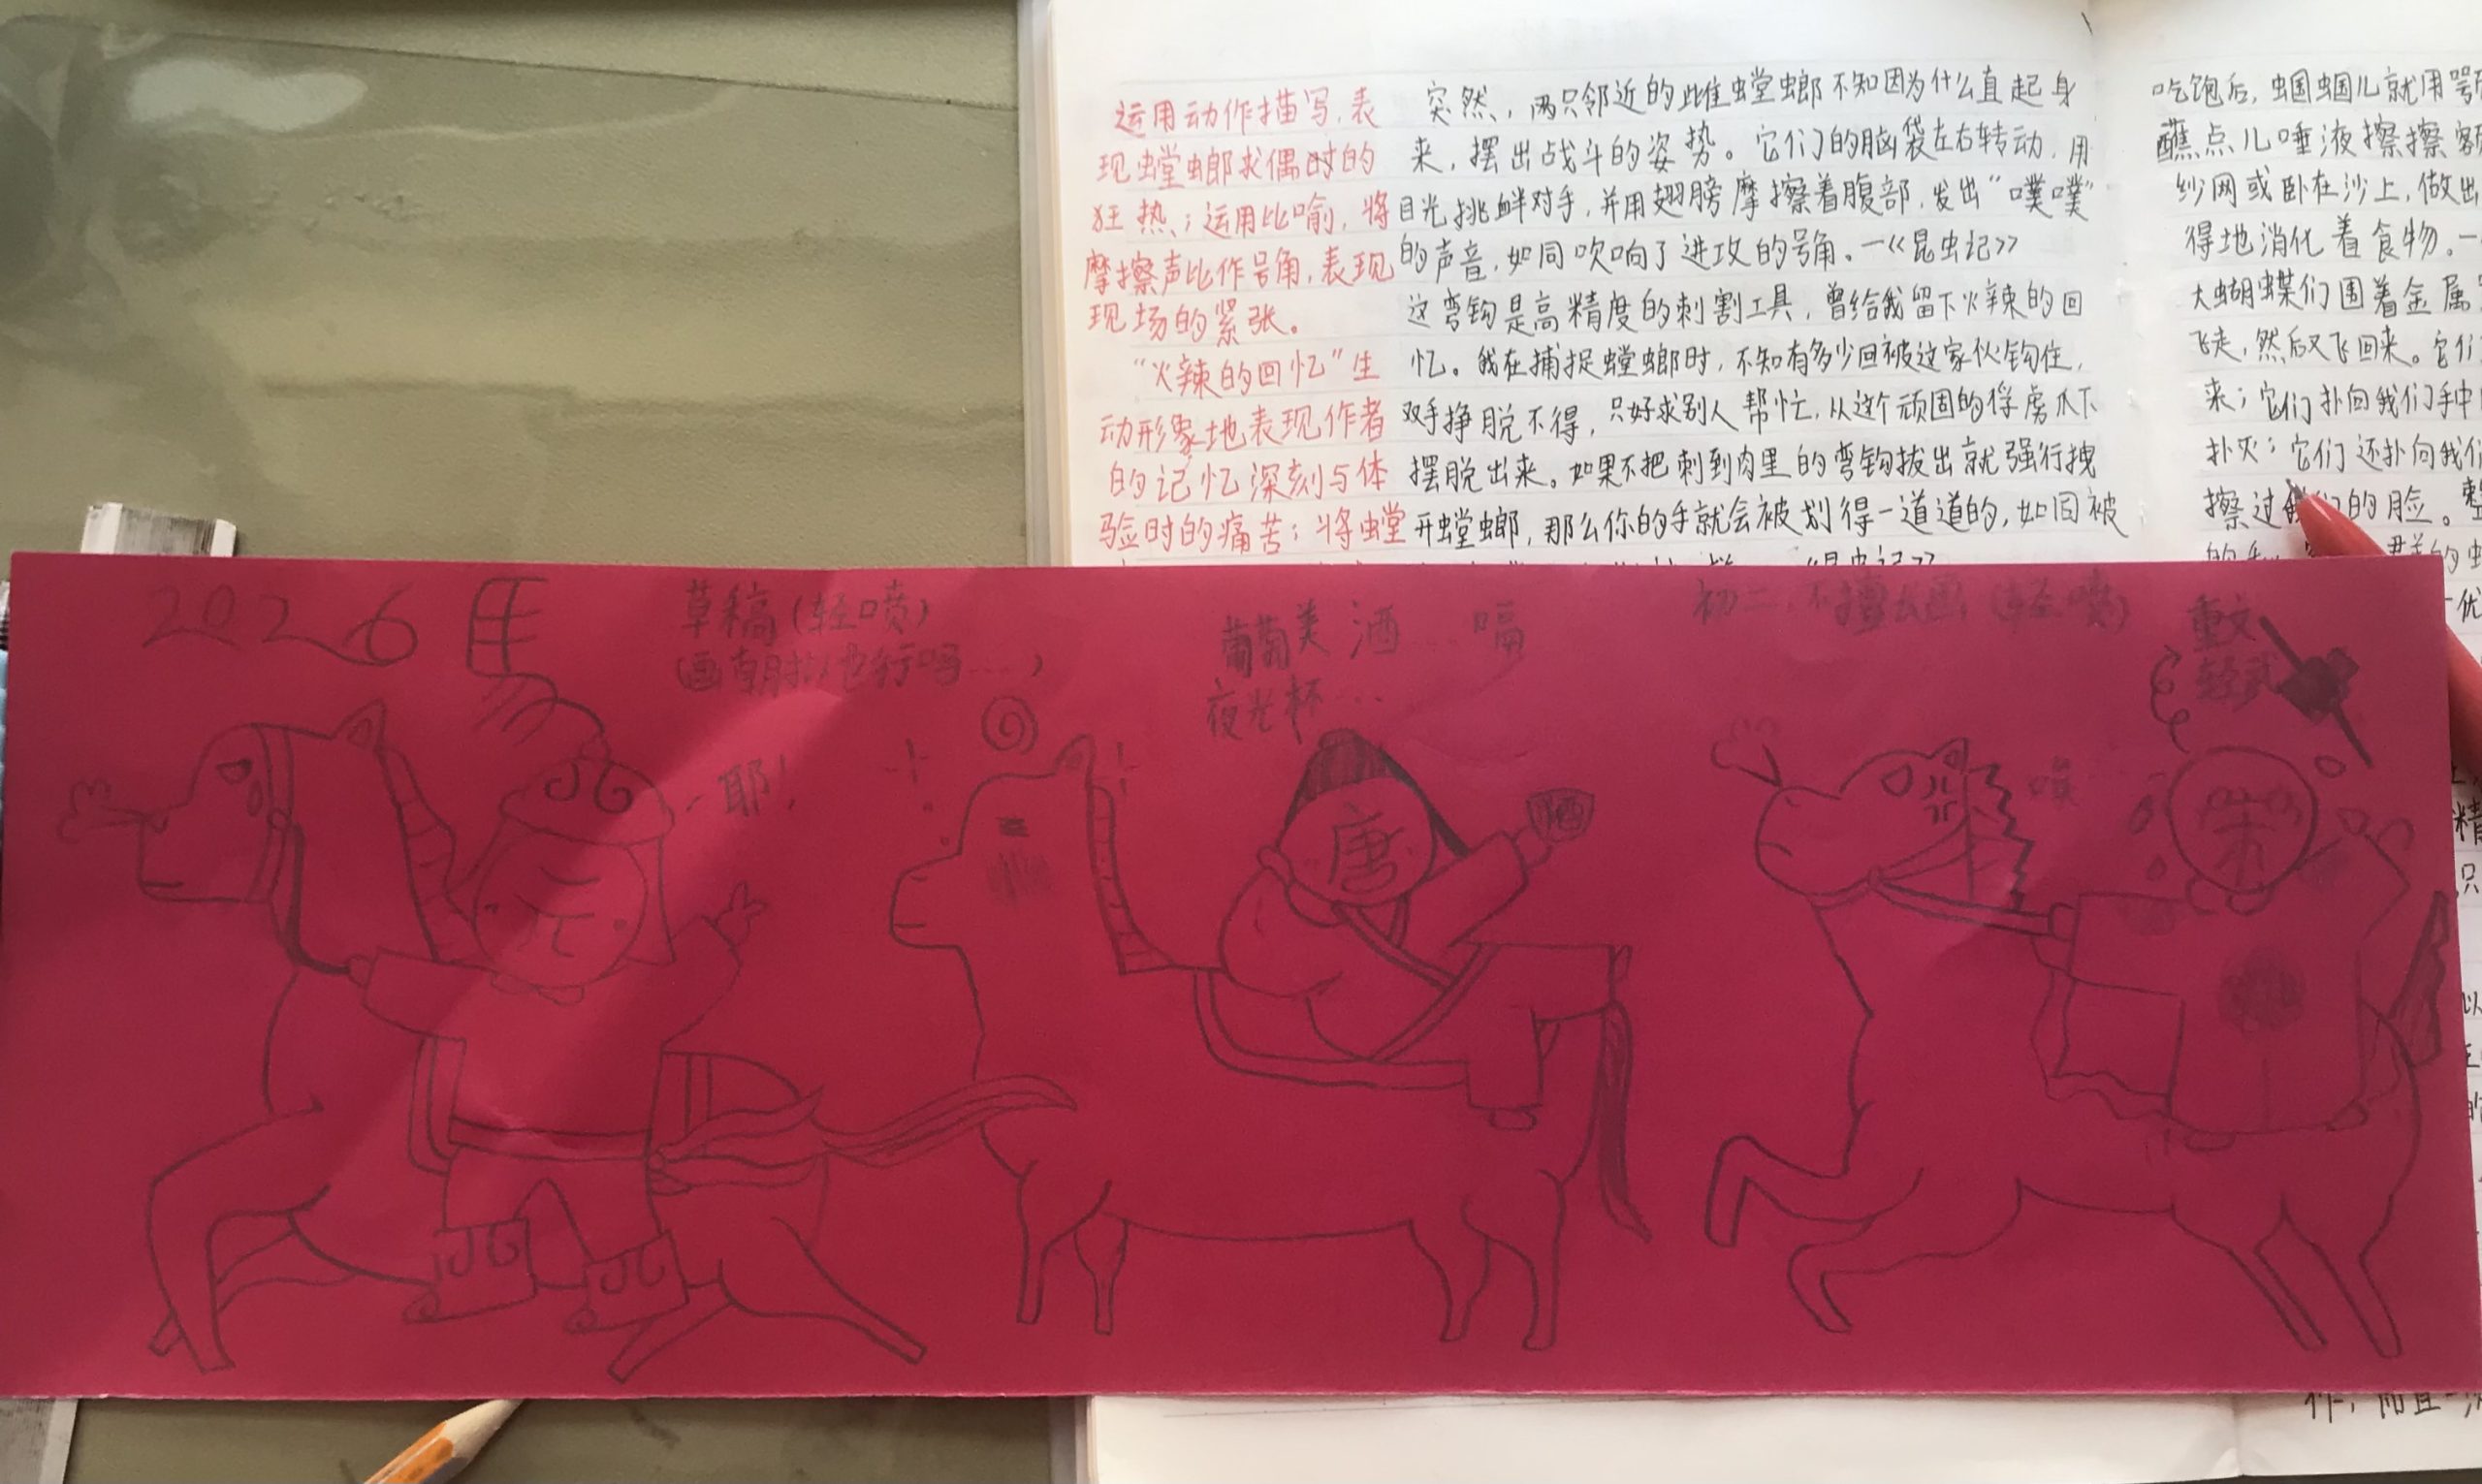 运用动作描写,表
现螳螂求偶时的
狂热;运用比喻,将
摩擦声比作号角,表现
现场的紧张。
“火辣的回忆”生
动形象地表现作者
的记忆深刻与体
验时的痛苦;将螳
突然,两只邻近的雌螳螂不知因为什么直起身
来,摆出战斗的姿势。它们的脑袋左右转动,用
目光挑衅对手,并用翅膀摩擦着腹部,发出“噗噗”
的声音,如同吹响了进攻的号角。—《昆虫记》
这弯钩是高精度的刺割工具,曾给我留下火辣的回
忆。我在捕捉螳螂时,不知有多少回被这家伙钩住,
双手挣脱不得,只好求别人帮忙,从这个顽固的俘虏爪下
摆脱出来。如果不把刺到肉里的弯钩拔出就强行拽
开螳螂,那么你的手就会被划得一道道的,如同被
吃饱后,蝈蝈儿就用
蘸点儿唾液擦擦
纱网或卧在沙上,做出
得地消化着食物。一
大蝴蝶们围着金属
飞走,然后又飞回来。它们
来;它们扑向我们手中
扑灭;它们还扑向我们
擦过 们的脸。
2026馬
草稿(轻喷)
(画朝拟也行吗……)
耶!
元
葡萄美酒……嗝
夜光杯…
唐
酒
初二,不擅长画(轻喷)
重文
轻武
宋